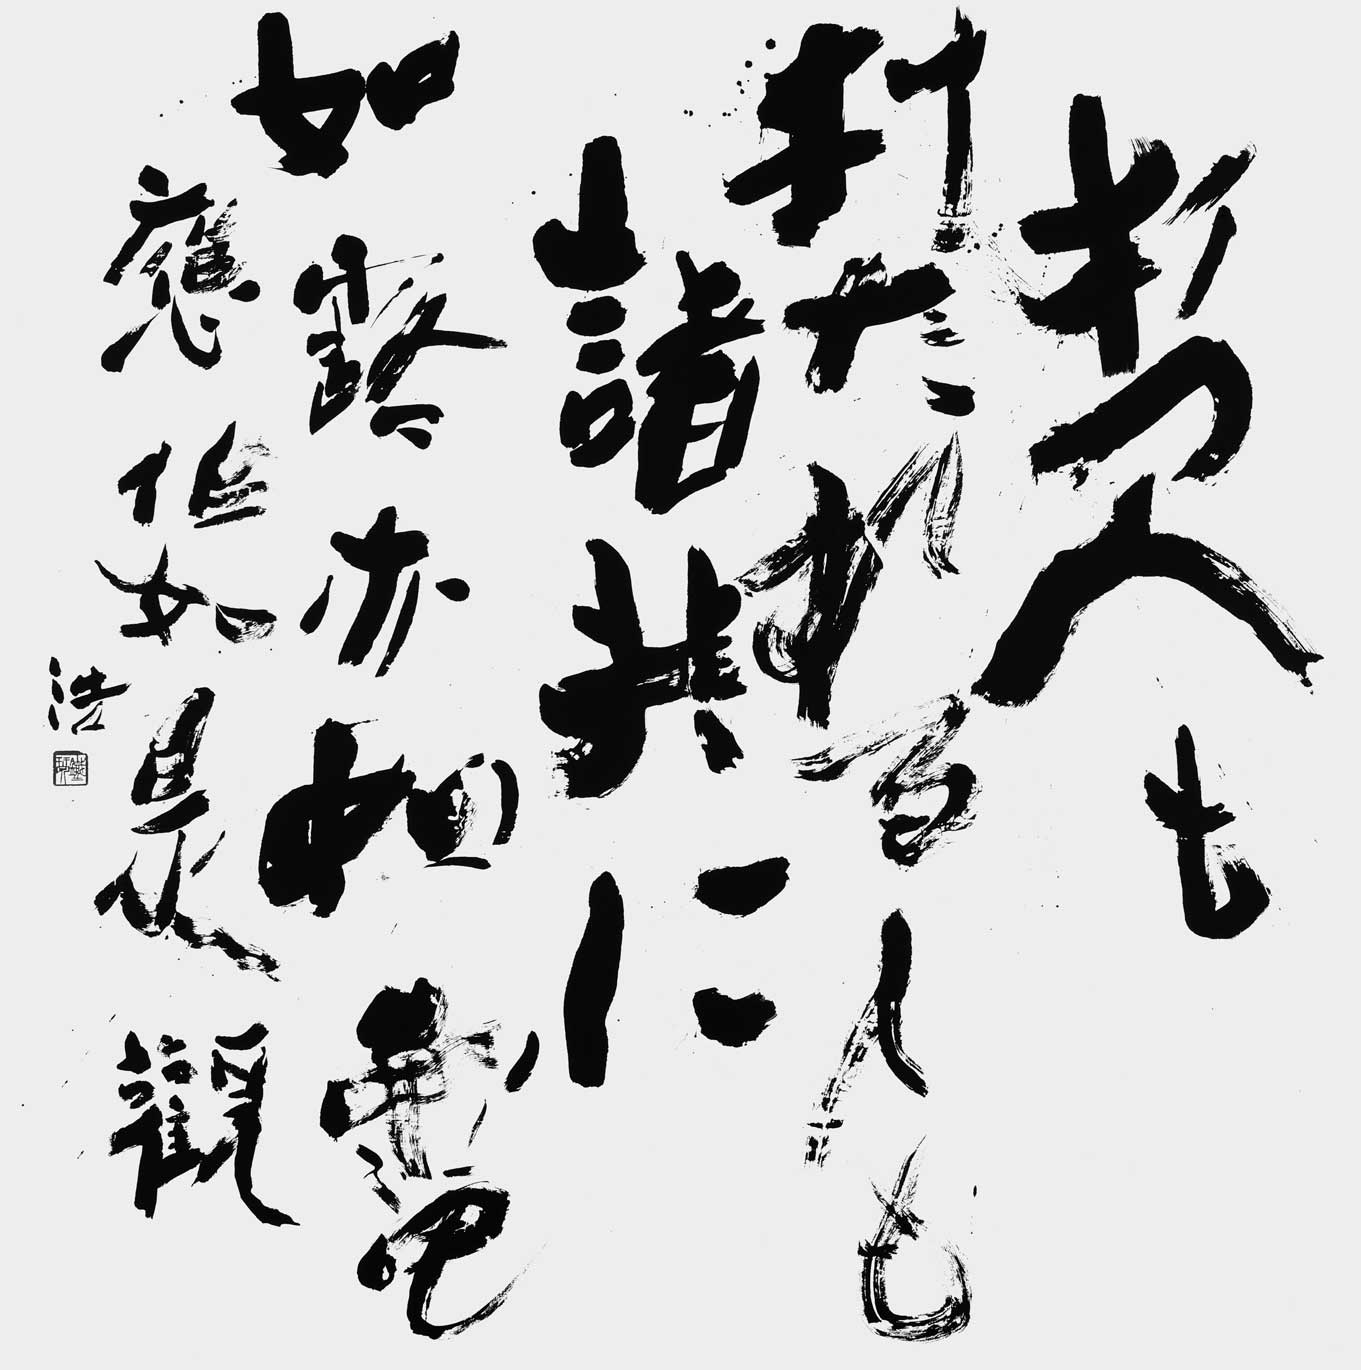 打つ人も
打たれる人も
諸共に
如露亦如電
應作如是觀
浩